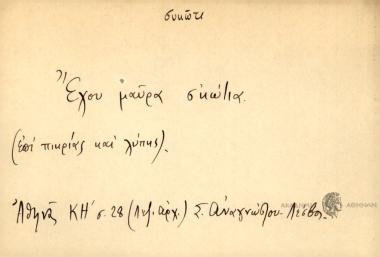 συκώτι
Ἔχου μαῦρα σκώτια.
(ἐπί πικρίας καί λύπης).
Ἀθηνᾶ ΚΗ' σ. 28 (Λεξ. ἀρχ.) Σ. Ἀναγνώστου. Λέσβος.